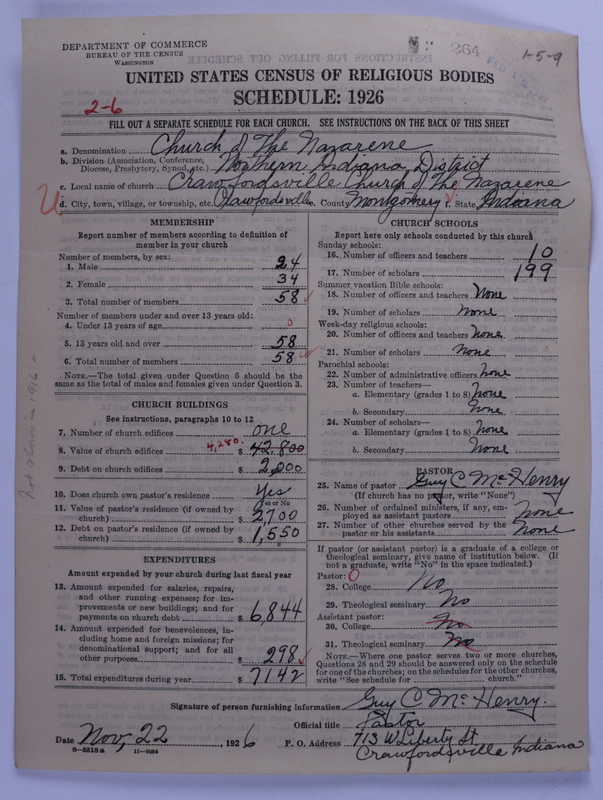 DEPARTMENT OF COMMERCE
BUREAU OF THE CENSUS
WASHINGTON
264
1-5-9
UNITED STATES CENSUS OF RELIGIOUS BODIES
SCHEDULE: 1926
2-6
FILL OUT A SEPARATE SCHEDULE FOR EACH CHURCH. SEE INSTRUCTIONS ON THE BACK OF THIS SHEET
a. Denomination Church of The Nazarene
b. Division (Association, Conference, Diocese, Presbytery, Synod, etc.) Northern Indiana District
c. Local name of church Crawfordsville Church of The Nazarene
d. City, town, village, or township, etc. Crawfordsville e. County Montgomery f. State Indiana
MEMBERSHIP
Report number of members according to definition of
member in your church
Number of members, by sex:
1. Male 24
2. Female 34
3. Total number of members 58
Number of members under and over 13 years old:
4. Under 13 years of age 0
5. 13 years old and over 58
6. Total number of members 58
NOTE.—The total given under Question 6 should be
same as the total of males and females given under Question 3.
CHURCH BUILDINGS
See instructions, paragraphs 10 to 12
7. Number of church edifices one
8. Value of church edifices 4,280. $ 42,800
9. Debt on church edifices $ 2,000
10. Does church own pastor's residence Yes
Yes or No
11. Value of pastor's residence (if owned by
church) $ 2,700
12. Debt on pastor's residence (if owned by
church) $ 1,550
EXPENDITURES
Amount expended by your church during last fiscal year
13. Amount expended for salaries, repairs,
and other running expenses; for im-
provements or new buildings; and for
payments on church debt $ 6,844
14. Amount expended for benevolences, in-
cluding home and foreign missions; for
denominational support; and for all
other purposes $ 298
15. Total expenditures during year $ 7142
CHURCH SCHOOLS
Report here only schools conducted by this church
Sunday schools:
16. Number of officers and teachers 10
17. Number of scholars 199
Summer vacation Bible schools:
18. Number of officers and teachers None
19. Number of scholars None
Week-day religious schools:
20. Number of officers and teachers None
21. Number of scholars None
Parochial schools:
22. Number of administrative officers None
23. Number of teachers—
a. Elementary (grades 1 to 8) None
b. Secondary None
24. Number of scholars—
a. Elementary (grades 1 to 8) None
b. Secondary None
PASTOR
25. Name of pastor Guy C. McHenry
(If church has no pastor, write "None")
26. Number of ordained ministers, if any, em-
ployed as assistant pastors None
27. Number of other churches served by the
pastor or his assistants None
If pastor (or assistant pastor) is a graduate of a college or
theological seminary, give name of institution below. (If
not a graduate, write "No" in the space indicated.)
Pastor: O
28. College No
29. Theological seminary No
Assistant pastor:
30. College No
31. Theological seminary No
NOTE.—Where one pastor serves two or more churches,
Questions 28 and 29 should be answered only on the schedule
for one of the churches; on the schedules for the other churches,
write "See schedule for church."
Signature of person furnishing information Guy C. McHenry.
Official title Pastor
Date Nov, 22, 1926 P. O. Address 713 W Liberty St
Crawfordsville Indiana
8—5518a 11—9084